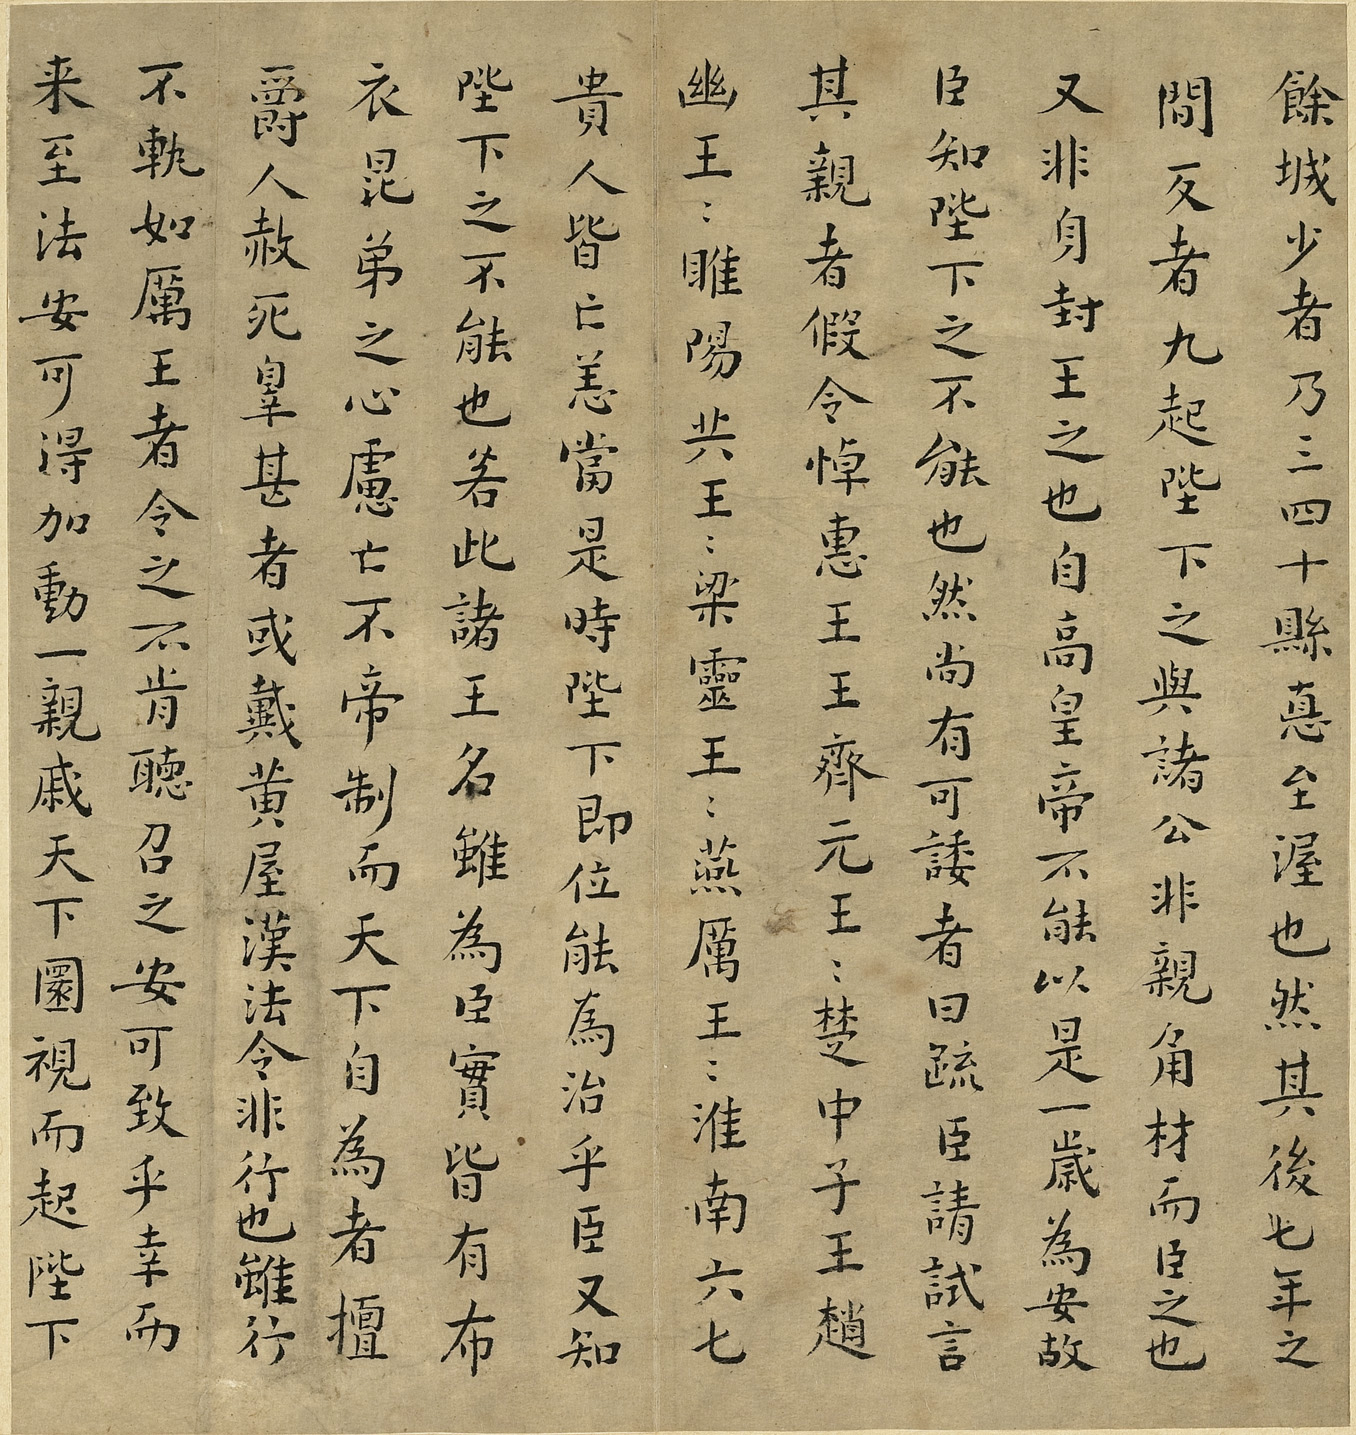 餘城少者乃三四十縣悳至渥也然其後七年之
間反者九起陛下之與諸公非親角材而臣之也
又非身封王之也自高皇帝不能以是一歲為安故
臣知陛下之不能也然尚有可諉者曰疏臣請試言
其親者假令悼惠王王齊元王〻楚中子王趙
幽王〻睢陽共王〻梁靈王〻燕厲王〻淮南六七
貴人皆亡恙當是時陛下即位能為治乎臣又知
陛下之不能也若此諸王名雖為臣實皆有布
衣昆弟之心慮亡不帝制而天下自為者擅
爵人赦死辠甚者或戴黃屋漢法令非行也雖行
不軌如厲王者令之不肯聽召之安可致乎幸而
来至法安可得加動一親戚天下圜視而起陛下